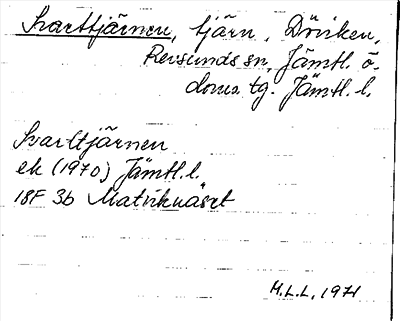 Svarttjärnen, tjärn, Döviken,
Revsunds sn, Jämtl. ö.
doms. tg. Jämtl. l.
Svarttjärnen
ek (1970) Jämtl. l.
18F 3b Matviknäset
M.L.L. 1971